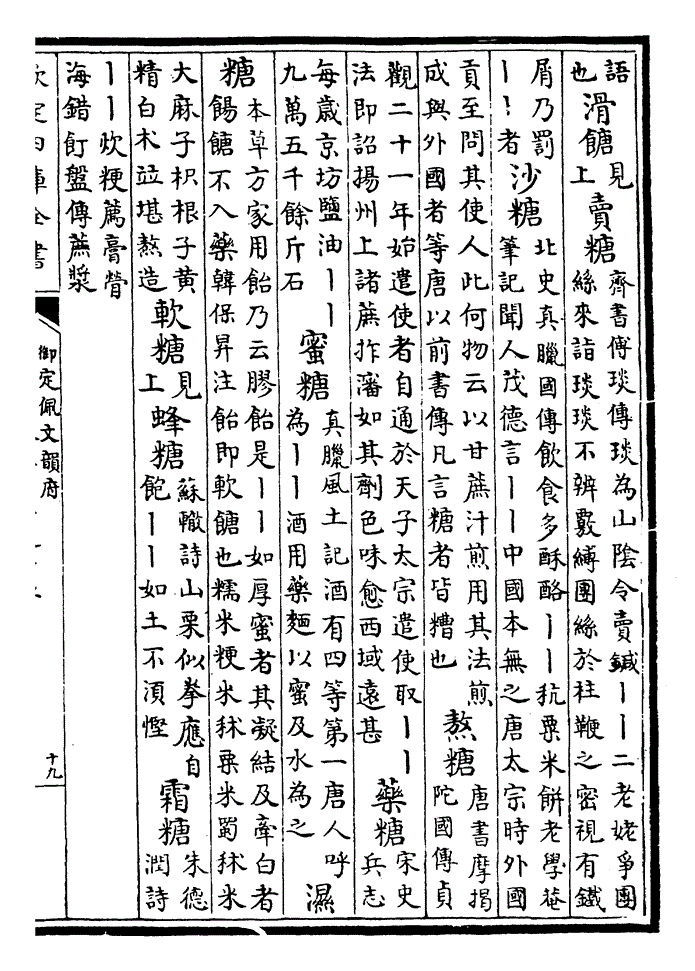 語也滑餹見上賣糖齊書傅琰傳琰為山陰令賣鍼丨丨二老姥爭團絲來詣琰琰不辨覈縛團絲於柱鞭之密視有鐵
屑乃罰丨丨者沙糖北史真臘國傳飲食多酥酪丨丨秔粟米餅老學菴筆記聞人茂德言丨丨中國本無之唐太宗時外國
貢至問其使人此何物云以甘蔗汁煎用其法煎成與外國者等唐以前書傳凡言糖者皆糟也熬糖唐書摩揭陀國傳貞
觀二十一年始遣使者自通於天子太宗遣使取丨丨法即詔揚州上諸蔗拃瀋如其劑色味愈西域遠甚藥糖宋史兵志
每歲京坊鹽油丨丨九萬五千餘斤石蜜糖真臘風土記酒有四等第一唐人呼為丨丨酒用藥麵以蜜及水為之濕
糖本草方家用飴乃云膠飴是丨丨如厚蜜者其凝結及牽白者餳餹不入藥韓保昇注飴即軟餹也糯米粳米秫粟米蜀秫米
大麻子枳椇子黄精白术竝堪熬造軟糖見上蜂糖蘇轍詩山栗似拳應自飽丨丨如土不湏慳霜糖朱德潤詩
丨丨炊粳薦膏膋海錯飣盤傳蔗漿
欽定四庫全書
御定佩文韻府
十九